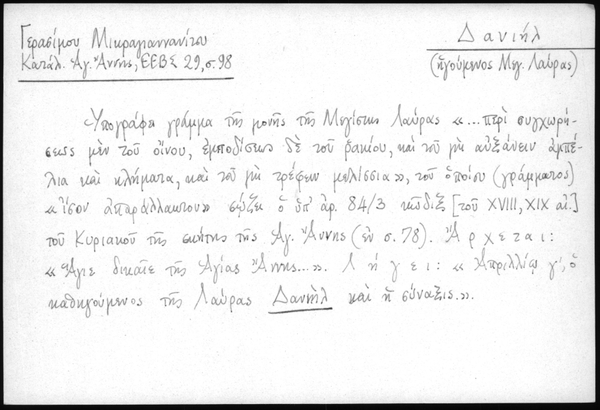 Γερασίμου Μικραγιαννανίτου
Κατάλ. Ἁγ. Ἄννης, ΕΕΒΣ 29, σ. 98
Δανιήλ
(ἡγούμενος Μεγ. Λαύρας)
Ὑπογράφει γράμμα τῆς μονῆς τῆς Μεγίστης Λαύρας «...περὶ συγχωρή-
σεως μὲν τοῦ οἴνου, ἐμποδίσεως δὲ τοῦ ῥακίου, καὶ τοῦ μὴ αὐξάνειν ἀμπέ-
λια καὶ κλήματα, καὶ τοῦ μὴ τρέφειν μελίσσια», τοῦ ὁποίου (γράμματος)
«ἴσον ἀπαράλλακτον» σῴζει ὁ ὑπ' ἀρ. 84/3 κῶδιξ [τοῦ XVIII, XIX αἰ.]
τοῦ Κυριακοῦ τῆς σκήτης τῆς Ἁγ. Ἄννης (ἐν σ. 78). Ἄρχεται:
«Ἅγιε δικαῖε τῆς Ἁγίας Ἄννης...». Λήγει: «Ἀπριλλίῳ γ', ὁ
καθηγούμενος τῆς Λαύρας Δανιὴλ καὶ ἡ σύναξις».